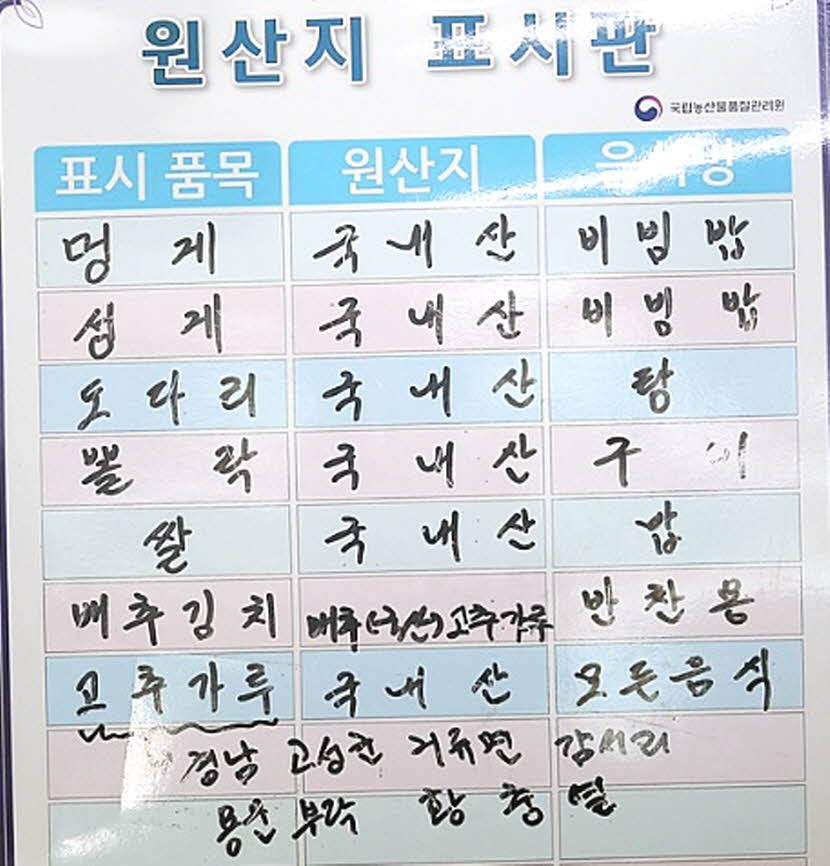 원산지 표시판
국립농산물품질관리원
표시 품목 원산지 음식명
멍게 국내산 비빔밥
성게 국내산 비빔밥
도다리 국내산 탕
뽈락 국내산 구이
쌀 국내산 밥
배추김치 배추(국산)고추가루 반찬용
고추가루 국내산 모든음식
경남 고성군 거류면 감서리
용운부락 황충열